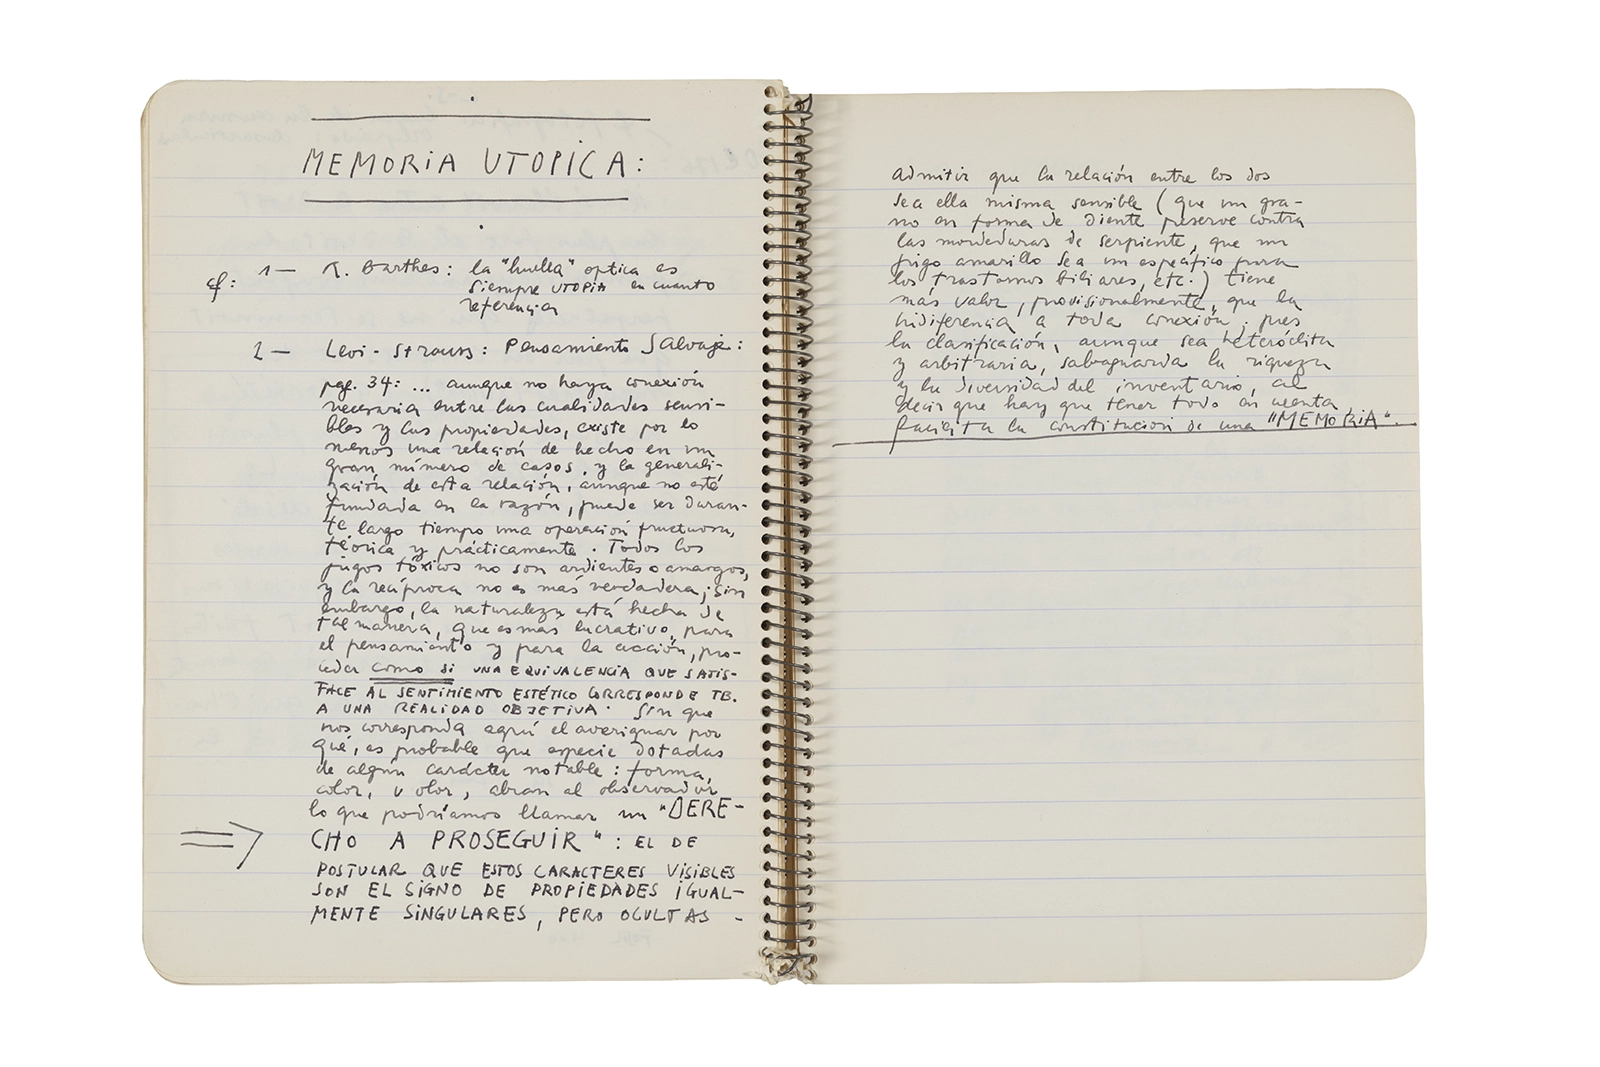 MEMORIA UTOPICA:
cf: 1— R. Barthes: la "huella" optica es
siempre UTOPIA en cuanto
referencia
2— Levi-Strauss: Pensamiento Salvaje:
pg. 34: ... aunque no haya conexión
necesaria entre las cualidades sensi-
bles y las propiedades, existe por lo
menos una relación de hecho en un
gran número de casos, y la generali-
zación de esta relación, aunque no esté
fundada en la razón, puede ser duran-
te largo tiempo una operación fructuosa,
teórica y prácticamente. Todos los
jugos tóxicos no son ardientes o amargos,
y la recíproca no es más verdadera; sin
embargo, la naturaleza está hecha de
tal manera, que es más lucrativo, para
el pensamiento y para la acción, pro-
ceder como si UNA EQUIVALENCIA QUE SATIS-
FACE AL SENTIMIENTO ESTÉTICO CORRESPONDE TB.
A UNA REALIDAD OBJETIVA. Sin que
nos corresponda aquí el averiguar por
qué, es probable que especie dotadas
de algún carácter notable: forma,
color, u olor, abran al observador
lo que podríamos llamar un "DERE-
CHO A PROSEGUIR": EL DE
POSTULAR QUE ESTOS CARACTERES VISIBLES
SON EL SIGNO DE PROPIEDADES IGUAL-
MENTE SINGULARES, PERO OCULTAS -
admitir que la relación entre los dos
sea ella misma sensible (que un gra-
no en forma de diente preserve contra
las mordeduras de serpiente, que un
jugo amarillo sea un específico para
los trastornos biliares, etc.) tiene
más valor, provisionalmente, que la
indiferencia a toda conexión, pues
la clasificación, aunque sea heteróclita
y arbitraria, salvaguarda la riqueza
y la diversidad del inventario, al
decir que hay que tener todo en cuenta,
facilita la constitución de una "MEMORIA".